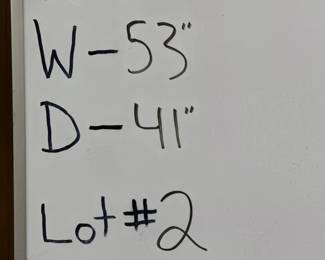 W-53"
D-41"
Lot #2